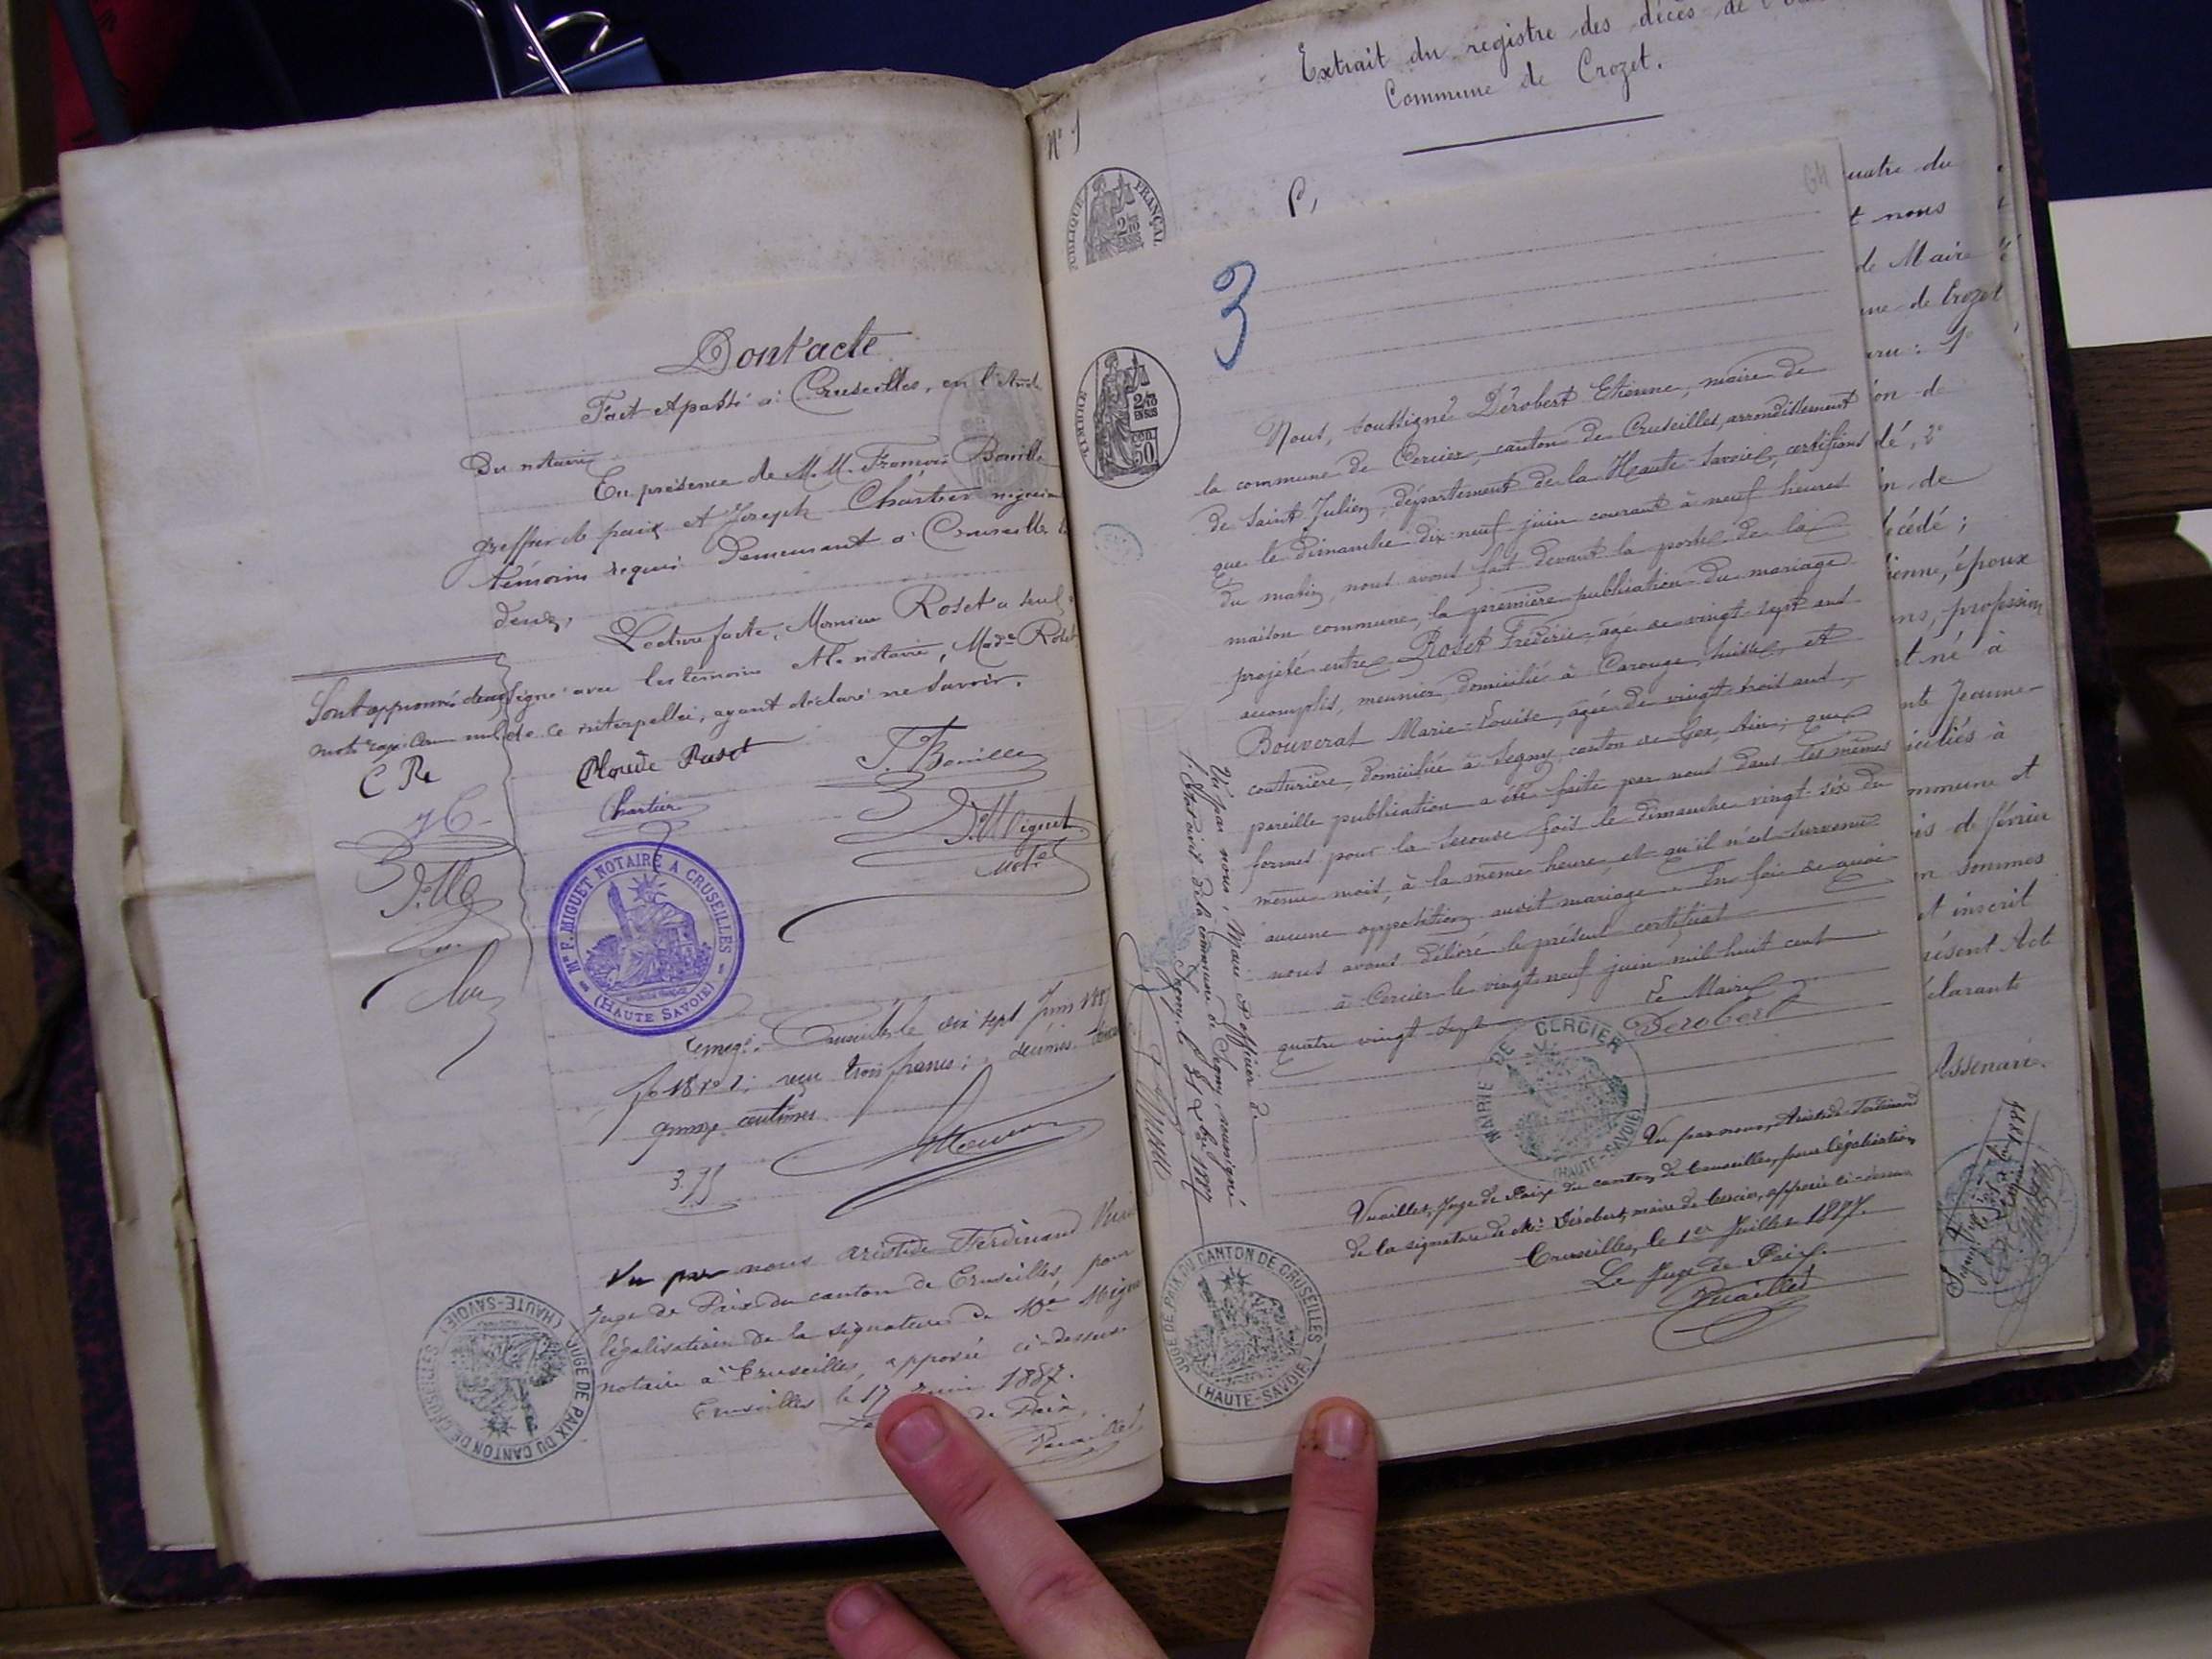 Dont acte
Fait et passé à Cruseilles, en l'étude
du notaire
En présence de M.M. François Bouille
greffier de paix et Joseph Chartier
témoins requis demeurant à Cruseilles
deux,
Lecture faite, Monsieur Roset a seul
signé avec les témoins et le notaire, Made Roset
de ce interpellée, ayant déclaré ne savoir.
Sont approuvés deux
mots rayés comme nuls
C R
Claude Roset
F. Bouille
Chartier
Not.
Me F. MIGUET NOTAIRE A CRUSEILLES
(HAUTE SAVOIE)
Cruseilles le dix sept juin 1887
fo 18 ro 1; reçu trois francs; décimes
quinze centimes
3.75
Vu par nous Aristide Ferdinand
Juge de Paix du canton de Cruseilles, pour
légalisation de la signature de Me
notaire à Cruseilles, apposée ci-dessus
Cruseilles le 17 Juin 1887.
de Paix,
Vuaillet
JUGE DE PAIX DU CANTON DE CRUSEILLES
(HAUTE-SAVOIE)
Extrait du registre des décès de l'
Commune de Crozet.
No 1
UBLIQUE FRANÇAI
2/10
EN SUS
P,
64
3
TIMBRE
2/10
EN SUS
50
Nous, soussigné Dérobert Etienne, maire de
la commune de Cercier, canton de Cruseilles, arrondissement
de Saint Julien, département de la Haute-Savoie, certifions
que le dimanche dix-neuf juin courant à neuf heures
du matin, nous avons fait devant la porte de la
maison commune, la première publication du mariage
projeté entre Roset Frédéric âgé de vingt-sept ans
accomplis, meunier, domicilié à Carouge, Suisse, et
Bouverat Marie-Louise, âgée de vingt-trois ans,
couturière, domiciliée à Segny, canton de Gex, Ain; que
pareille publication a été faite par nous dans les mêmes
formes pour la seconde fois le dimanche vingt-six du
même mois, à la même heure, et qu'il n'est survenu
aucune opposition audit mariage. En foi de quoi
nous avons délivré le présent certificat
à Cercier le vingt neuf juin mil huit cent
quatre vingt sept
Le Maire
Dérobert
MAIRIE DE CERCIER
(HAUTE-SAVOIE)
Vu par nous, Aristide Ferdinand
Vuaillet, Juge de Paix du canton de Cruseilles, pour légalisation
de la signature de Mr Dérobert, maire de Cercier, apposée ci-dessus
Cruseilles, le 1er Juillet 1887.
Le Juge de Paix.
Vuaillet
JUGE DE PAIX DU CANTON DE CRUSEILLES
(HAUTE-SAVOIE)
Vu par nous, Maire et officier de
l'Etat civil de la commune de Segny, soussigné
Segny, le
1887
uatre du
t nous
de Maire
ne de Crozet
on de
dé, 2°
n de
écédé;
ienne, époux
ns, profession
t né à
nte Jeanne-
iciliés à
mmune et
is de février
n sommes
et inscrit
résent Act
clarants
Assenare.